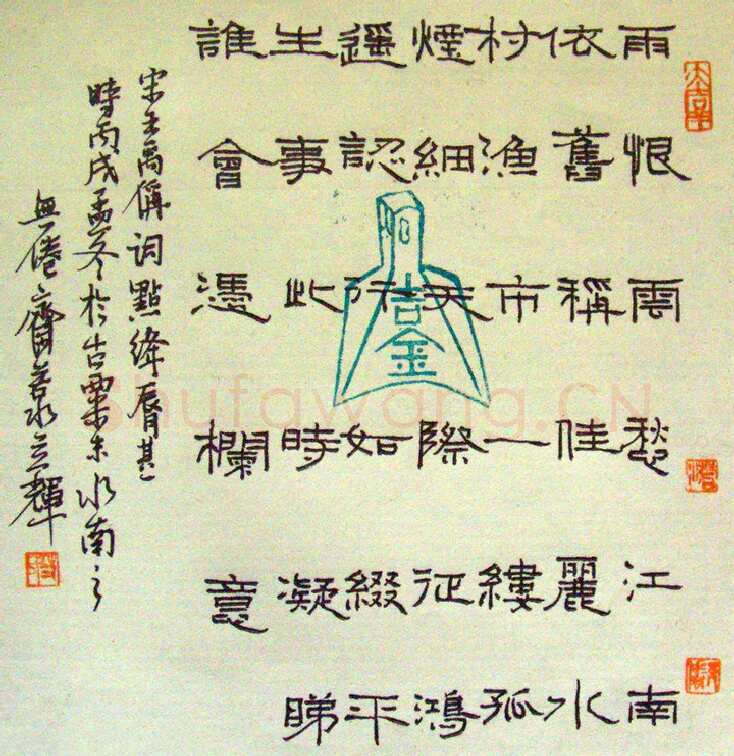 雨恨雲愁江南
依舊稱佳麗水
村漁市一縷孤
煙細天際征鴻
遙認行如綴平
生事此時凝睇
誰會憑欄意
宋王禹偁词點絳脣其一
時丙戌孟冬於古粟末水南之
無倦齋
吉金
Shufawang.CN